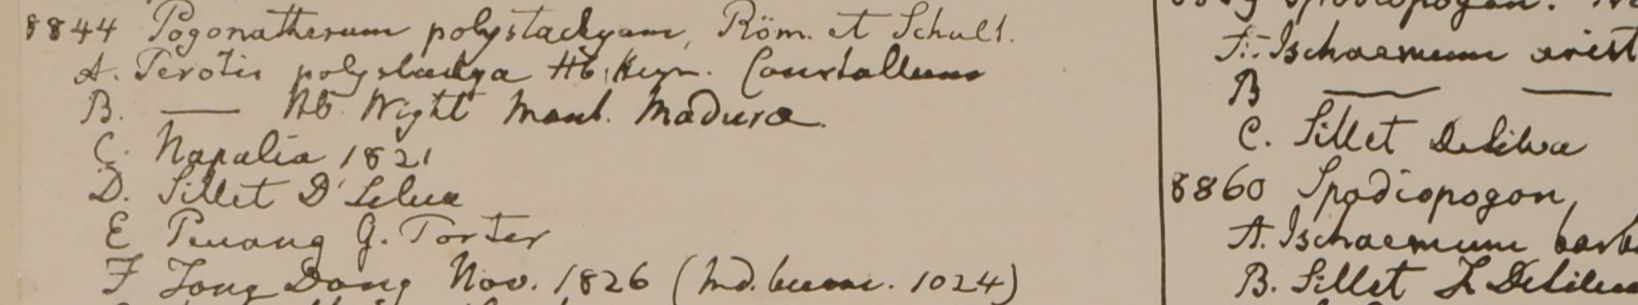 8844 Pogonatherum polystachyum, Röm. et Schult.
A. Perotis polystachya Hb. Heyn. Courtallum
B. —— Hb. Wight Mont. Madura.
C. Napalia 1821
D. Sillet D' Silva
E Penang G. Porter
F Tong Dong Nov. 1826 (Md. burm. 1024)
A. Ischaemum arist
B —— ——
C. Sillet DeSilva
8860 Spodiopogon,
A. Ischaemum barb
B. Sillet F. DeSilva